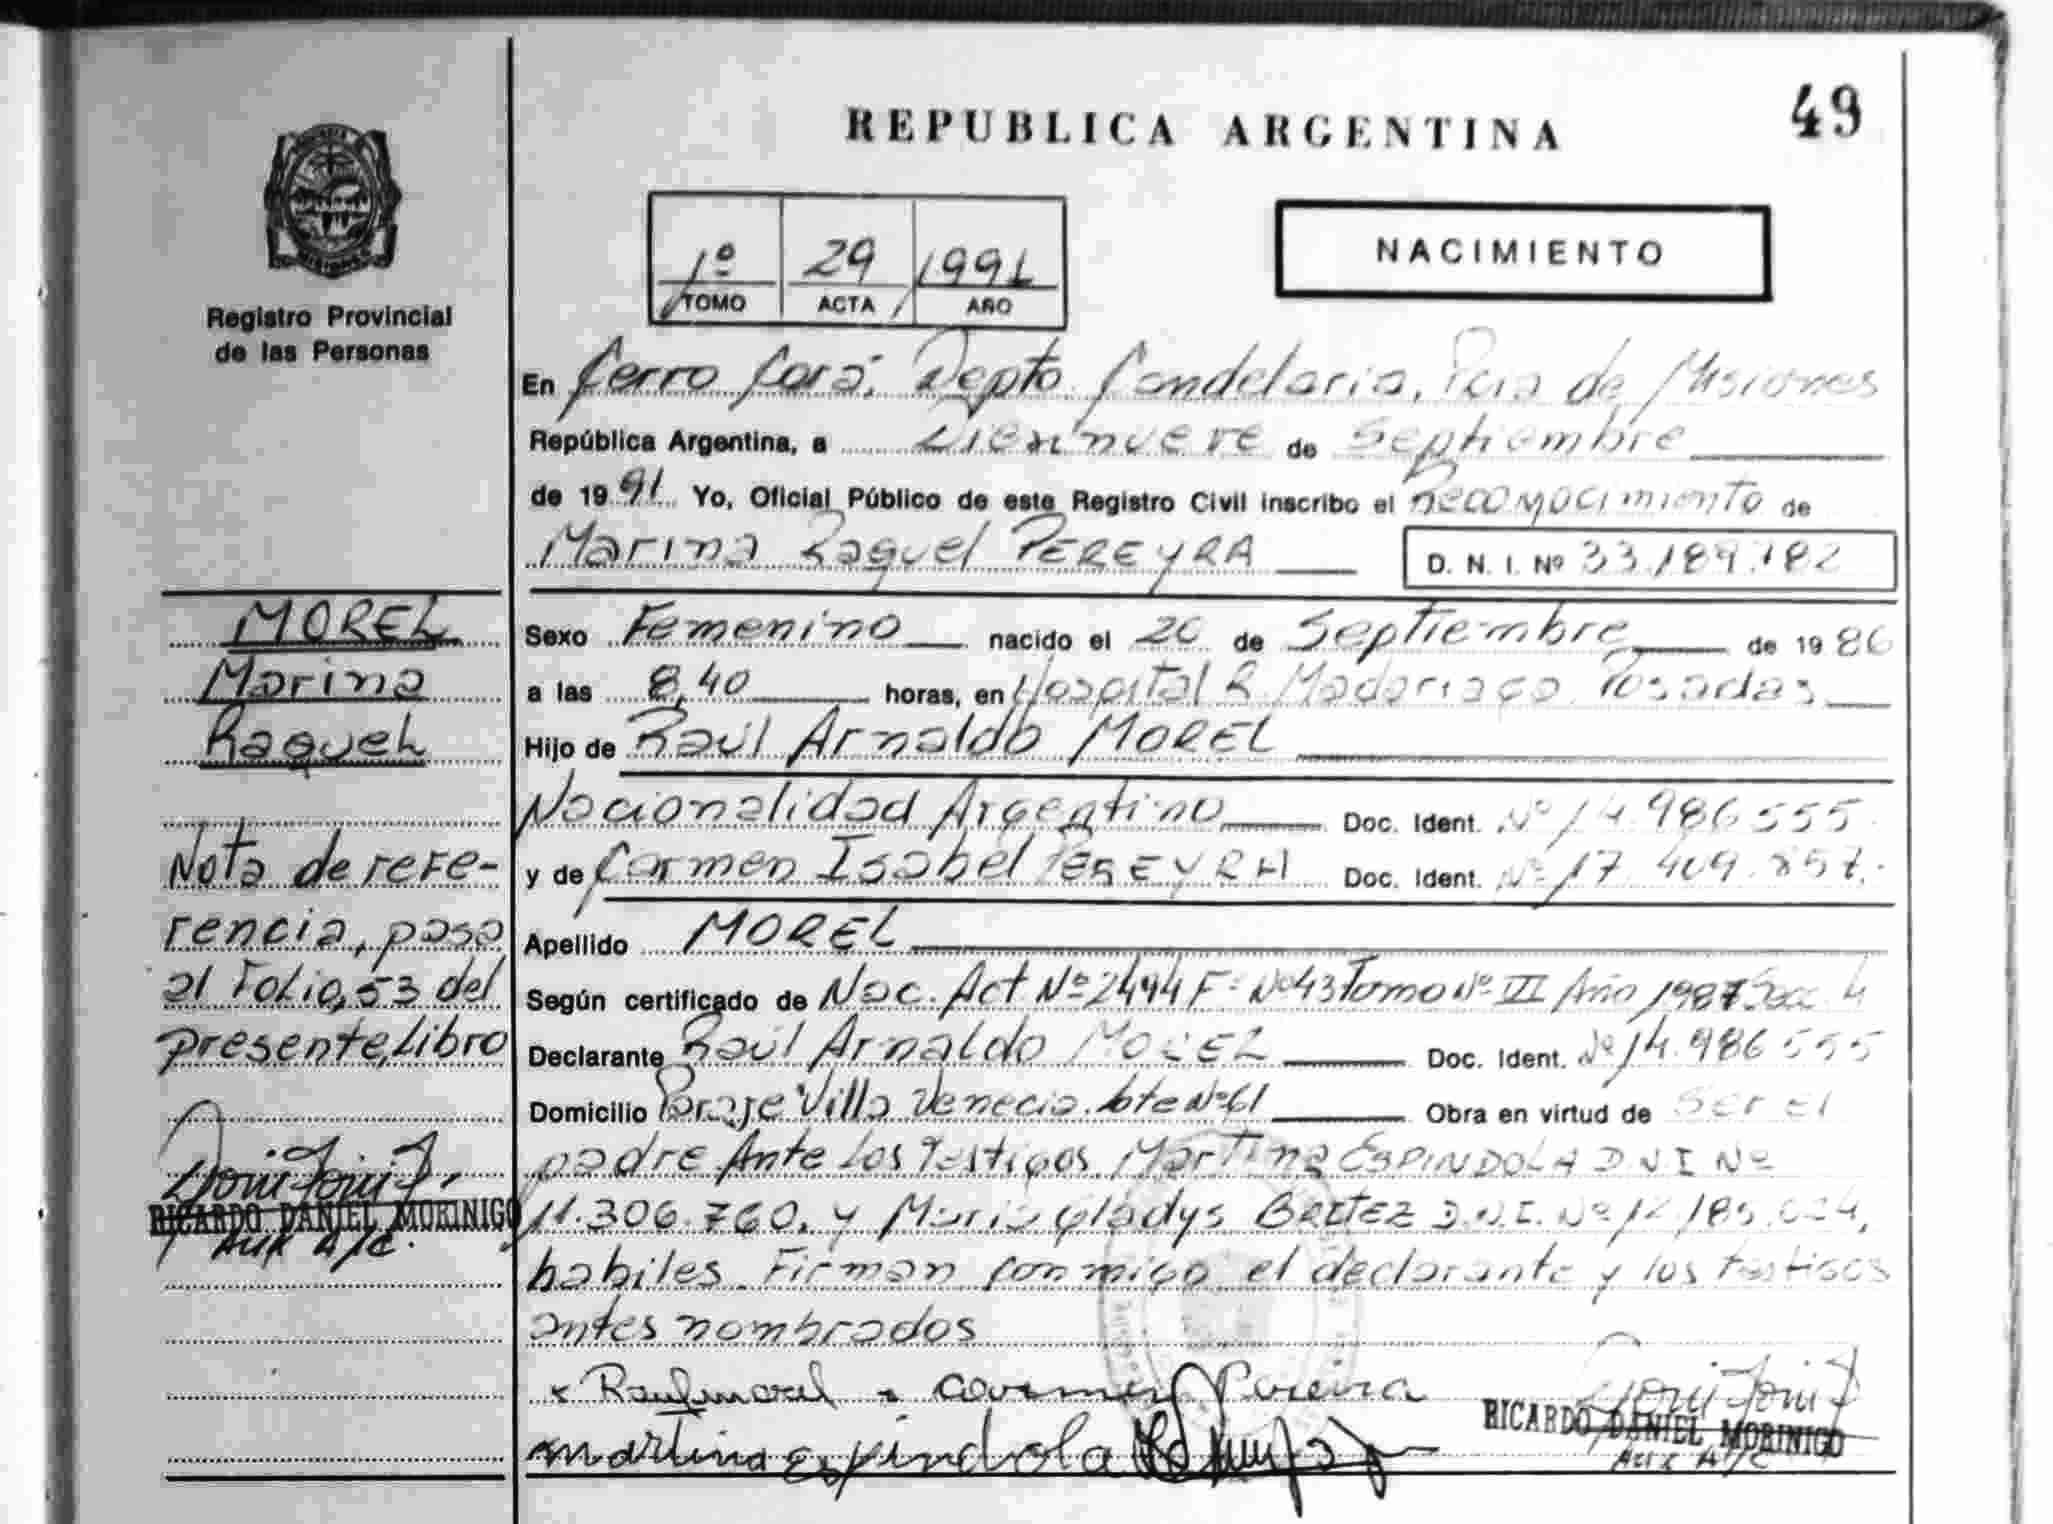 49
REPUBLICA ARGENTINA
1º 29 1991
TOMO ACTA AÑO
NACIMIENTO
Registro Provincial
de las Personas
En Cerro Corá, Depto Candelaria, Pcia de Misiones
República Argentina, a Diecinueve de Septiembre
de 1991 Yo, Oficial Público de este Registro Civil inscribo el Reconocimiento de
Marina Raquel PEREYRA D. N. I. Nº 33.189.782
MOREL
Marina
Raquel
Sexo Femenino nacido el 20 de Septiembre de 1986
a las 8,40 horas, en Hospital R. Madariaga Posadas
Hijo de Raúl Arnaldo MOREL
Nacionalidad Argentino Doc. Ident. Nº 14.986.555
y de Carmen Isabel PEREYRA Doc. Ident. Nº 17.409.857.
Apellido MOREL
Según certificado de Nac. Act Nº 2494 Fº Nº 43 Tomo Nº VII Año 1987 Secc. 4
Declarante Raúl Arnaldo MOREL Doc. Ident. Nº 14.986.555
Domicilio Paraje Villa Venecia. lote Nº 61 Obra en virtud de Ser el
padre Ante los Testigos Martina ESPINDOLA D.N.I Nº
11.306.760, y Maria Gladys BRITEZ D.N.I. Nº 12.185.024,
habiles. Firman conmigo el declarante y los testigos
antes nombrados
Nota de refe-
rencia, pasa
al Folio, 53 del
presente, Libro
RICARDO DANIEL MORINIGO
Aux A/C.
x Raul morel x Carmen Pereira
martina espindola
RICARDO DANIEL MORINIGO
Aux A/C